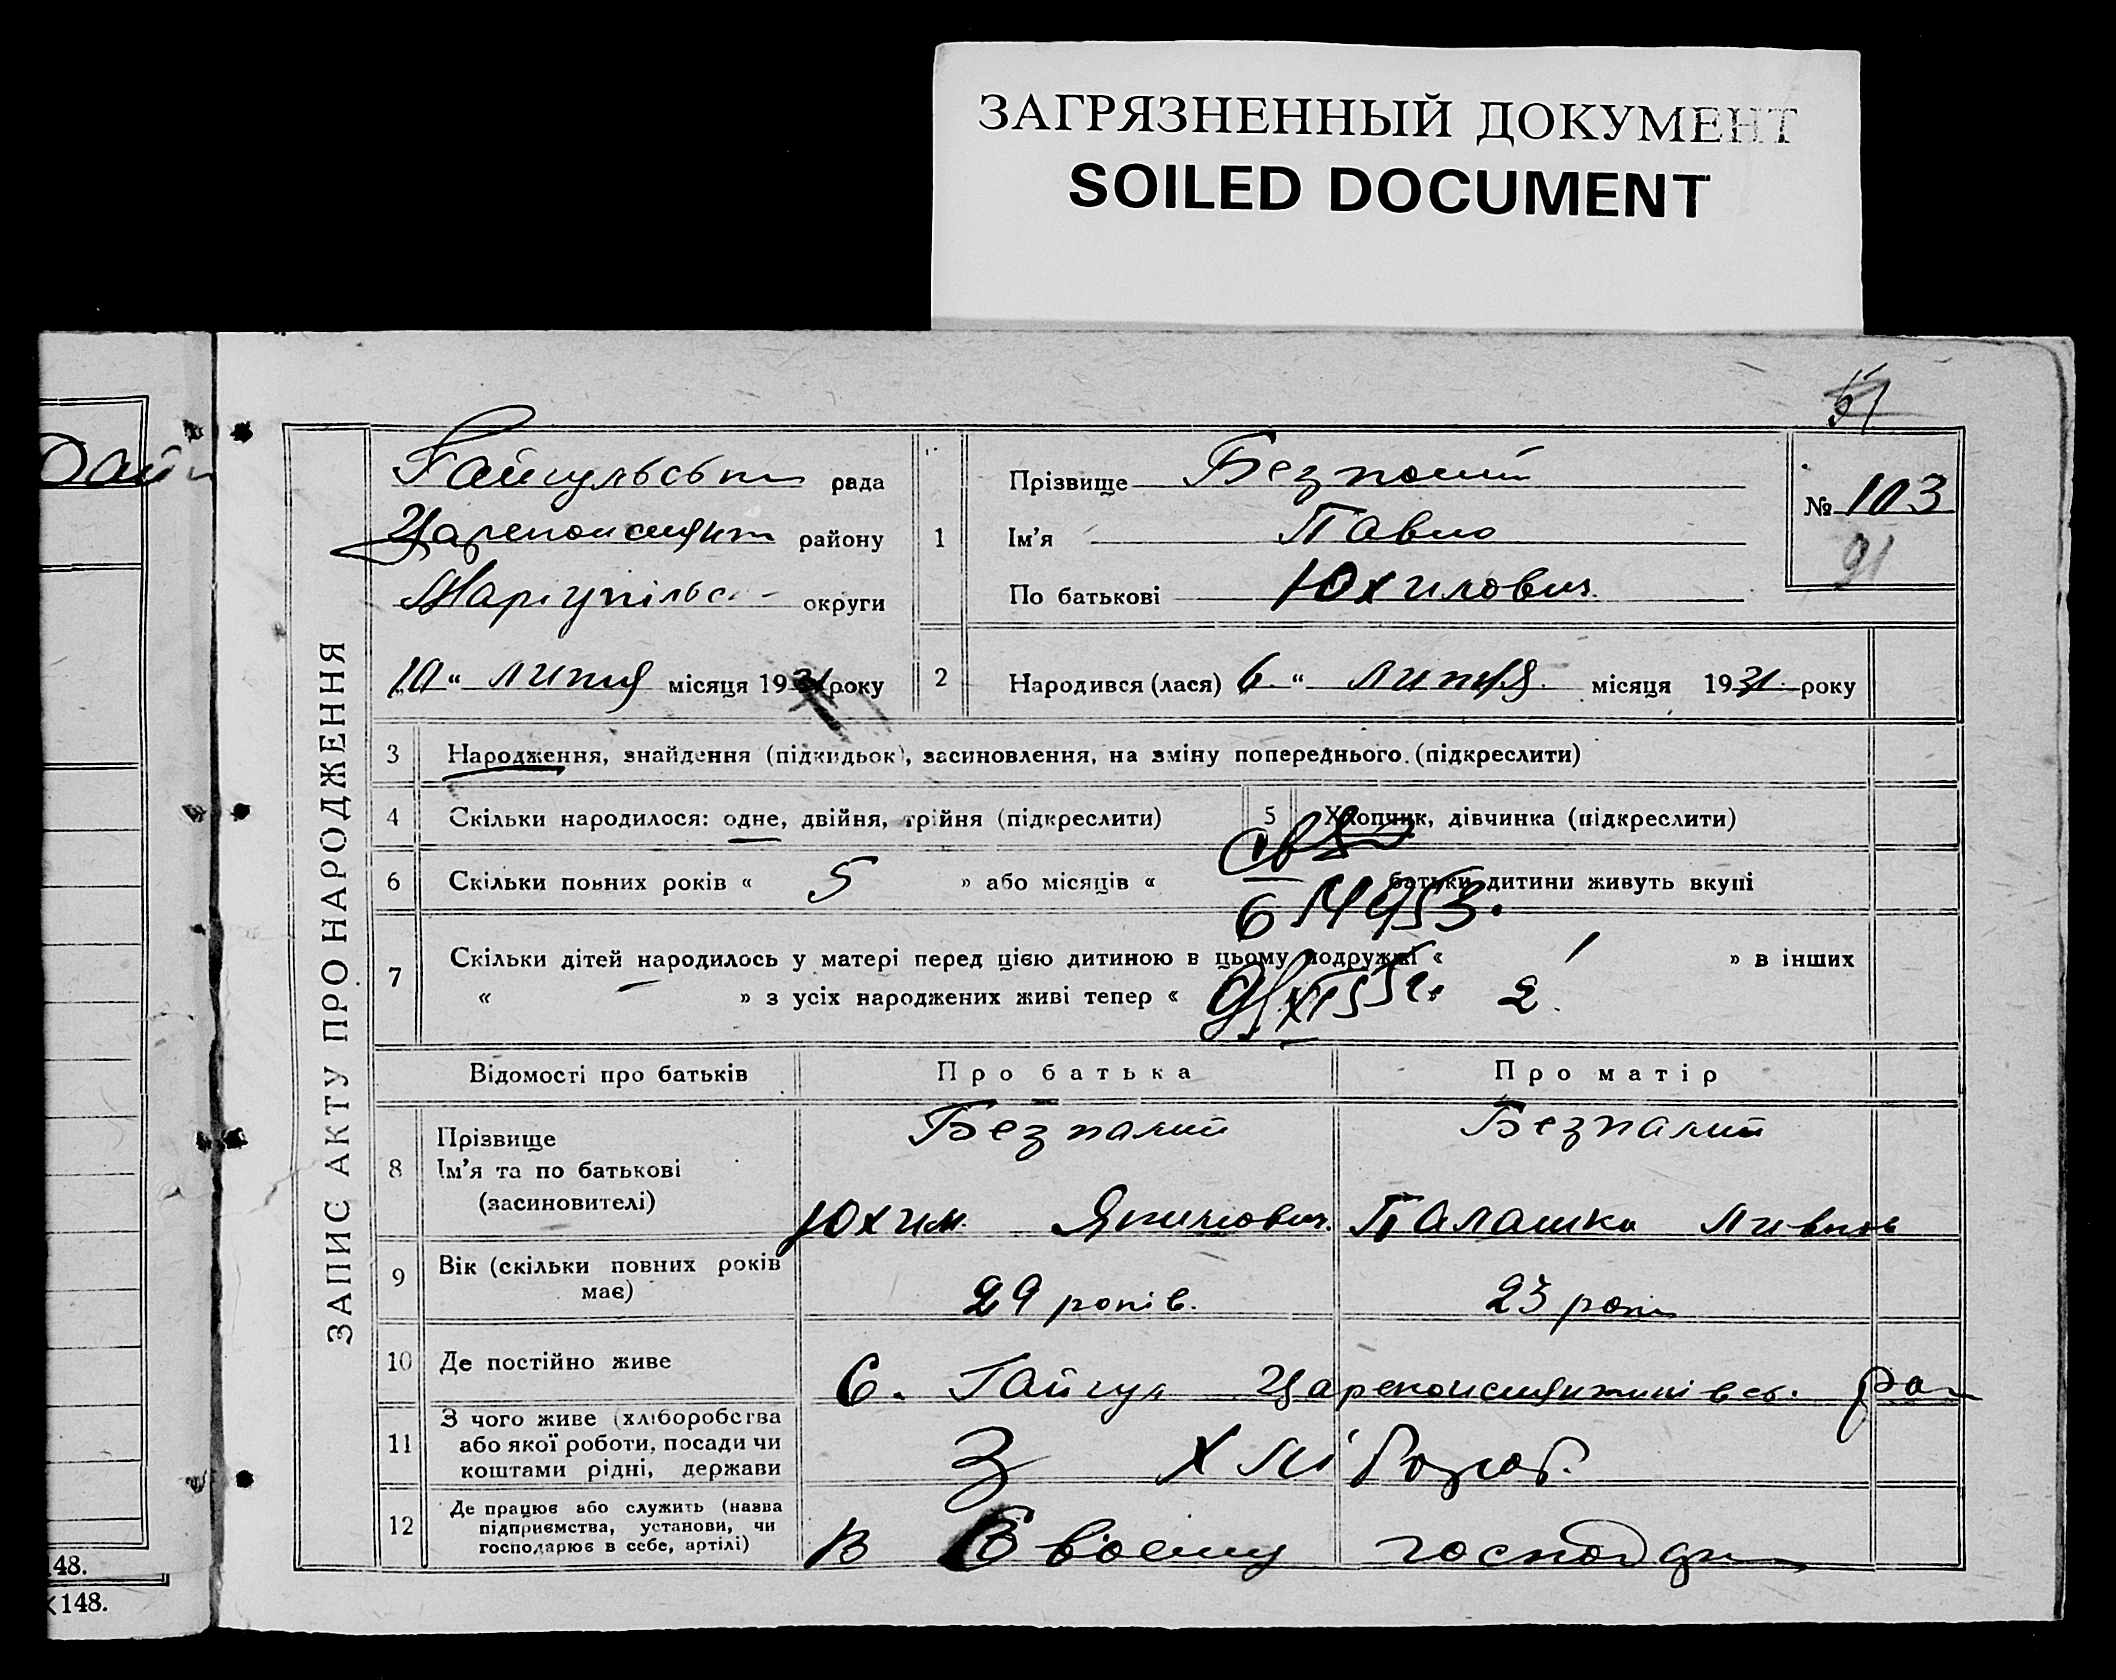 ЗАГРЯЗНЕННЫЙ ДОКУМЕНТ
SOILED DOCUMENT
148.
148.
ЗАПИС АКТУ ПРО НАРОДЖЕННЯ
рада
району
Маріупільс округи
10 “ липня місяця 1931 року
1
Прізвище Безпалий
Ім'я Павло
По батькові Юхимович
№ 103
91
2
Народився (лася) 6 “ липня місяця 1931 року
3 Народження, знайдення (підкидьок), засиновлення, на зміну попереднього (підкреслити)
4 Скільки народилося: одне, двійня, трійня (підкреслити)
5 Хлопчик, дівчинка (підкреслити)
6 Скільки повних років « 5 » або місяців « батьки дитини живуть вкупі
7 Скільки дітей народилось у матері перед цією дитиною в цьому подружжі « 1 » в інших
« – » з усіх народжених живі тепер « 2
Відомості про батьків
Про батька
Про матір
8 Прізвище
Ім'я та по батькові
(засиновителі)
Безпалий
Юхим Якимович
Безпалий
Палашка
9 Вік (скільки повних років має)
29 років.
23 роки
10 Де постійно живе
С. Гайчул
11 З чого живе (хліборобства
або якої роботи, посади чи
коштами рідні, держави
З хлібороб.
12 Де працює або служить (назва
підприємства, установи, чи
господарює в себе, артілі)
В своєму господ